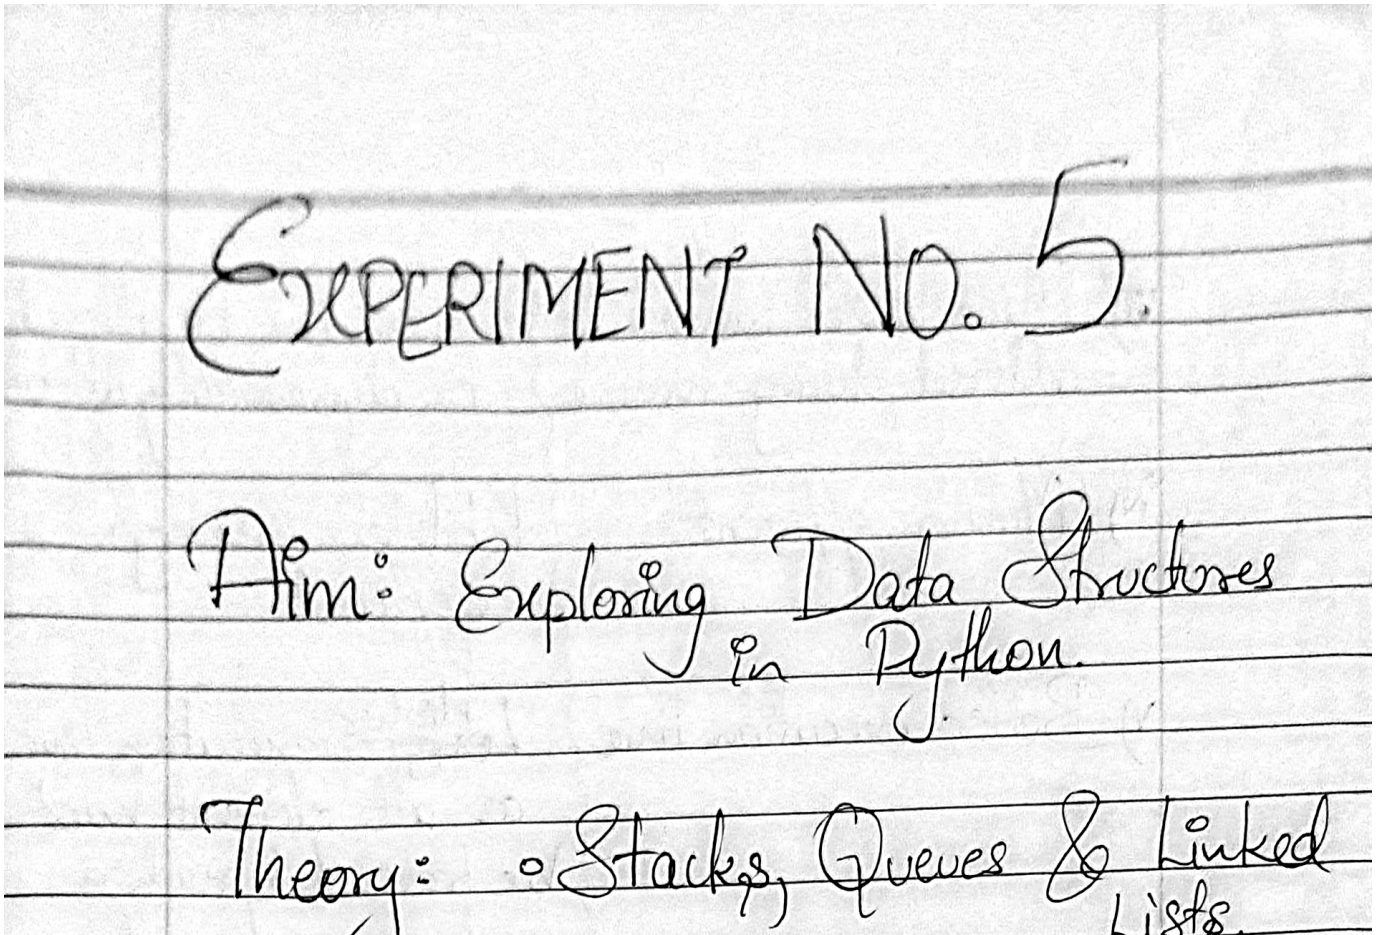 EXPERIMENT NO. 5.
Aim: Exploring Data Structures
in Python.
Theory: • Stacks, Queues & Linked
Lists.